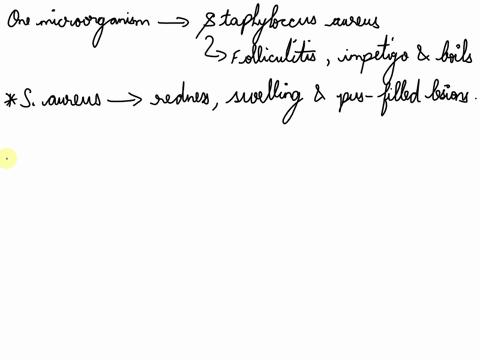 One microorganism → Staphyloccus aureus
↳ Folliculitis, impetigo & boils
* S. aureus → redness, swelling & pus-filled lesions.